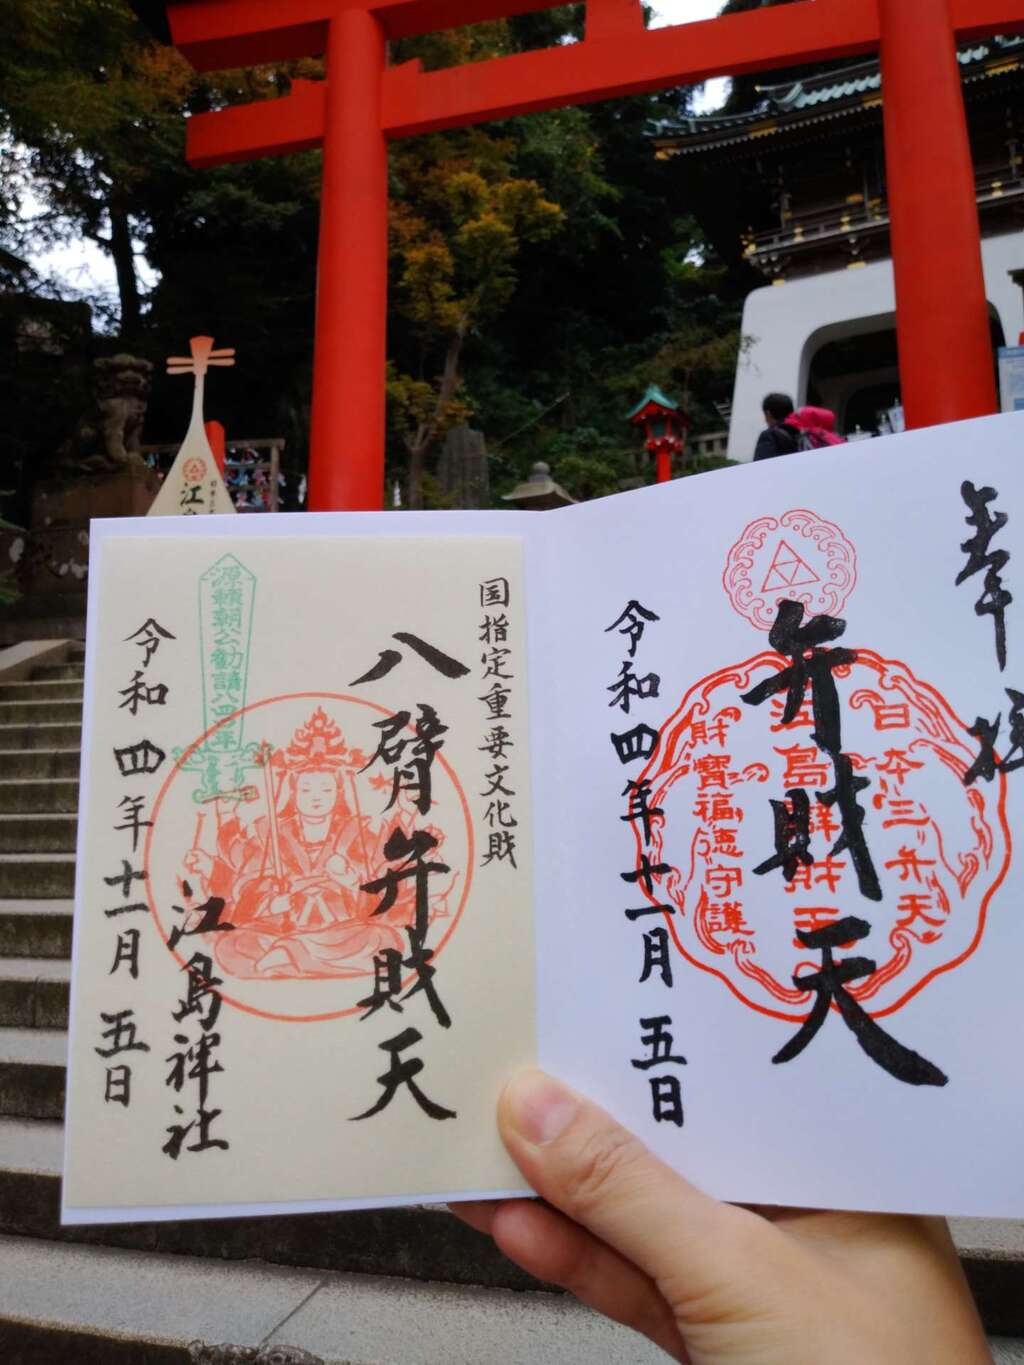 奉拝
日本三弁天
江島辨財天
財寶福徳守護
弁財天
令和四年十一月五日
国指定重要文化財
八臂弁財天
源頼朝公勧請八四〇年
江島神社
令和四年十一月五日
江